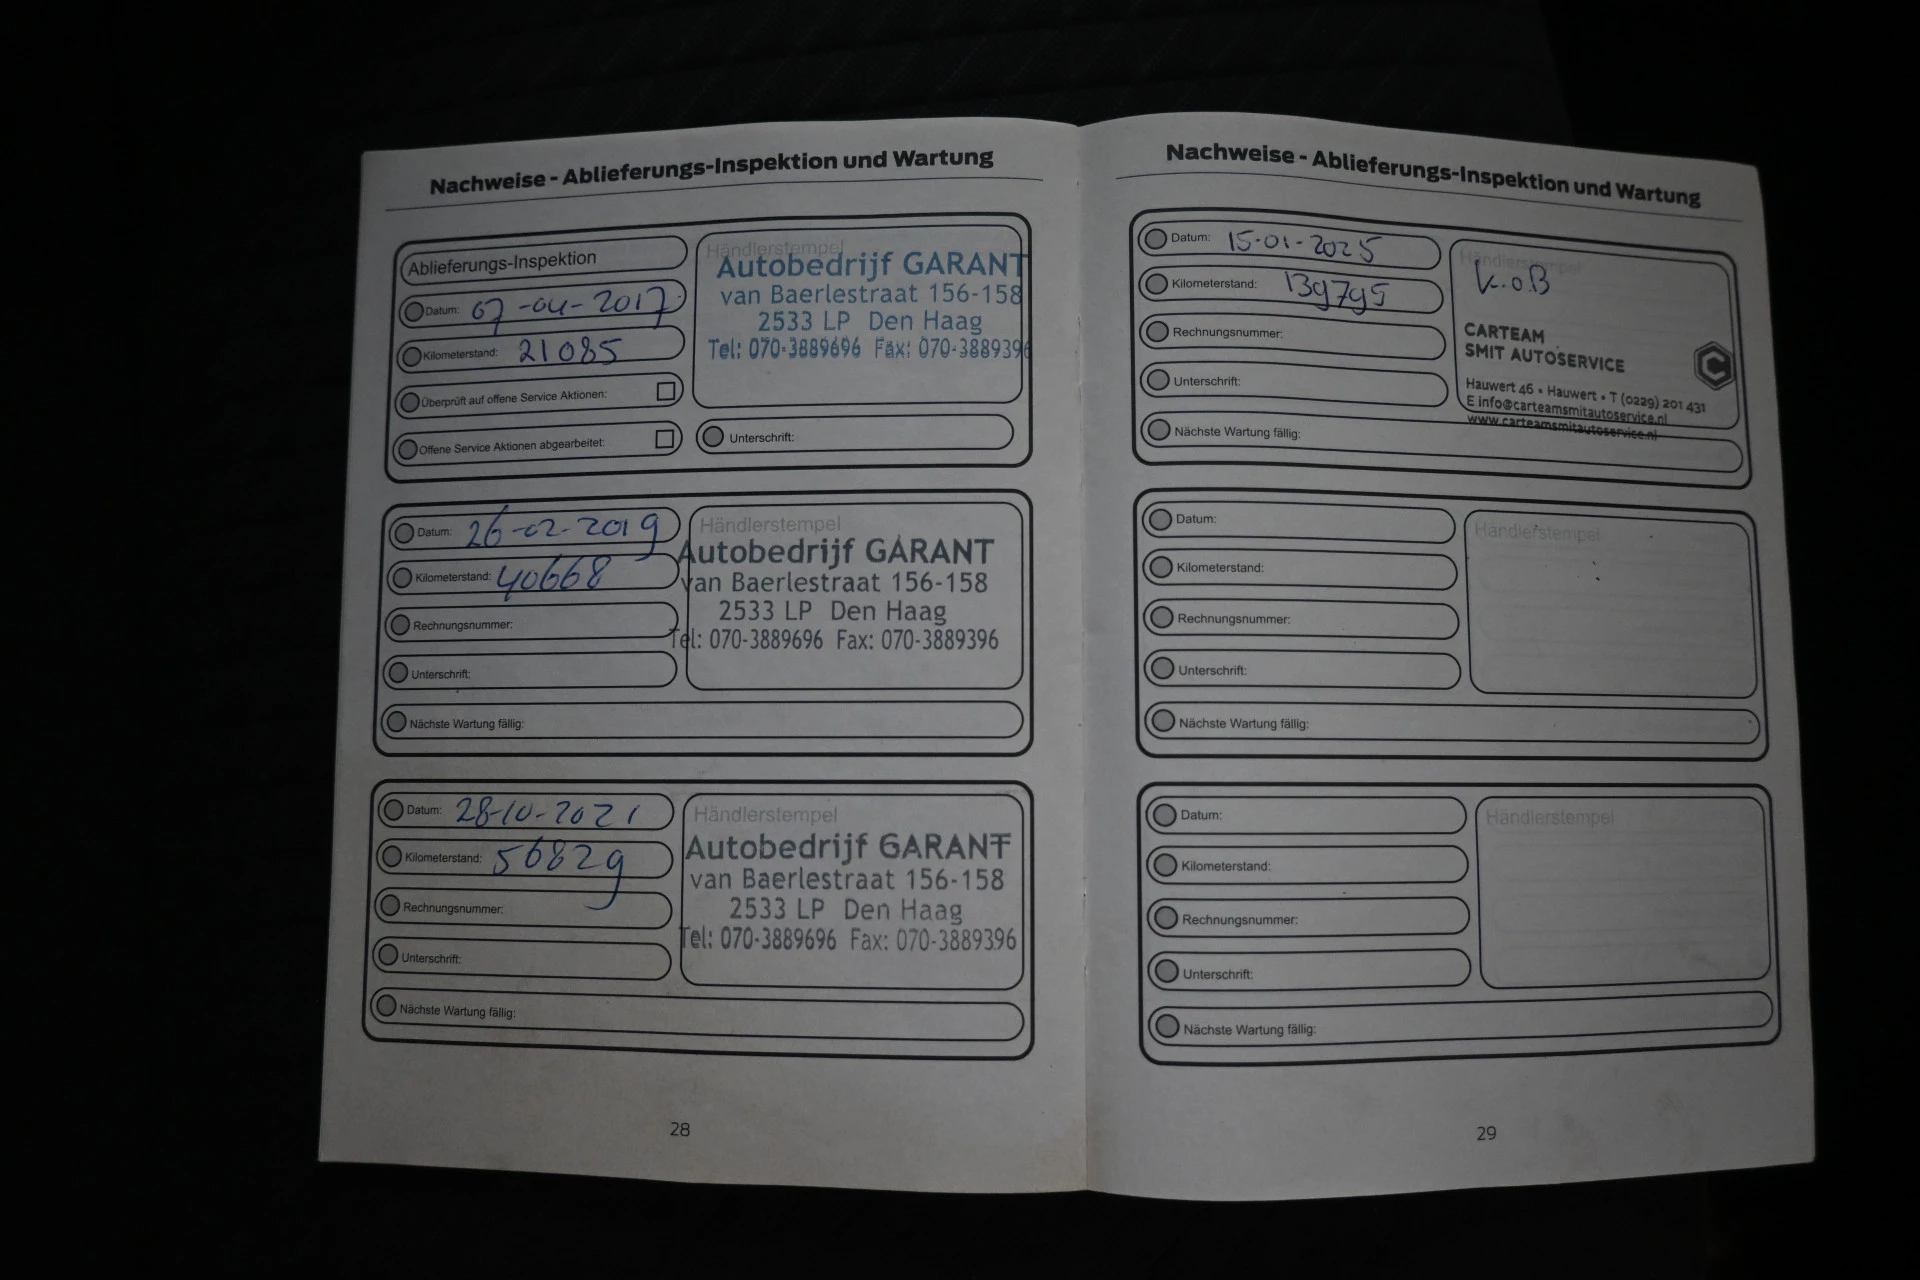 Nachweise - Ablieferungs-Inspektion und Wartung
Ablieferungs-Inspektion
Datum: 07-04-2017
Kilometerstand: 21085
Überprüft auf offene Service Aktionen:
Offene Service Aktionen abgearbeitet:
Händlerstempel
Autobedrijf GARANT
van Baerlestraat 156-158
2533 LP Den Haag
Tel: 070-3889696 Fax: 070-3889396
Unterschrift:
Datum: 26-02-2019
Kilometerstand: 40668
Rechnungsnummer:
Unterschrift:
Nächste Wartung fällig:
Händlerstempel
Autobedrijf GARANT
van Baerlestraat 156-158
2533 LP Den Haag
Tel: 070-3889696 Fax: 070-3889396
Datum: 28-10-2021
Kilometerstand: 56829
Rechnungsnummer:
Unterschrift:
Nächste Wartung fällig:
Händlerstempel
Autobedrijf GARANT
van Baerlestraat 156-158
2533 LP Den Haag
Tel: 070-3889696 Fax: 070-3889396
28
Nachweise - Ablieferungs-Inspektion und Wartung
Datum: 15-01-2025
Kilometerstand: 139795
Rechnungsnummer:
Unterschrift:
Nächste Wartung fällig:
Händlerstempel
K.O.B
CARTEAM
SMIT AUTOSERVICE
Hauwert 46 • Hauwert • T (0229) 201 431
E info@carteamsmitautoservice.nl
www.carteamsmitautoservice.nl
Datum:
Kilometerstand:
Rechnungsnummer:
Unterschrift:
Nächste Wartung fällig:
Händlerstempel
Datum:
Kilometerstand:
Rechnungsnummer:
Unterschrift:
Nächste Wartung fällig:
Händlerstempel
29